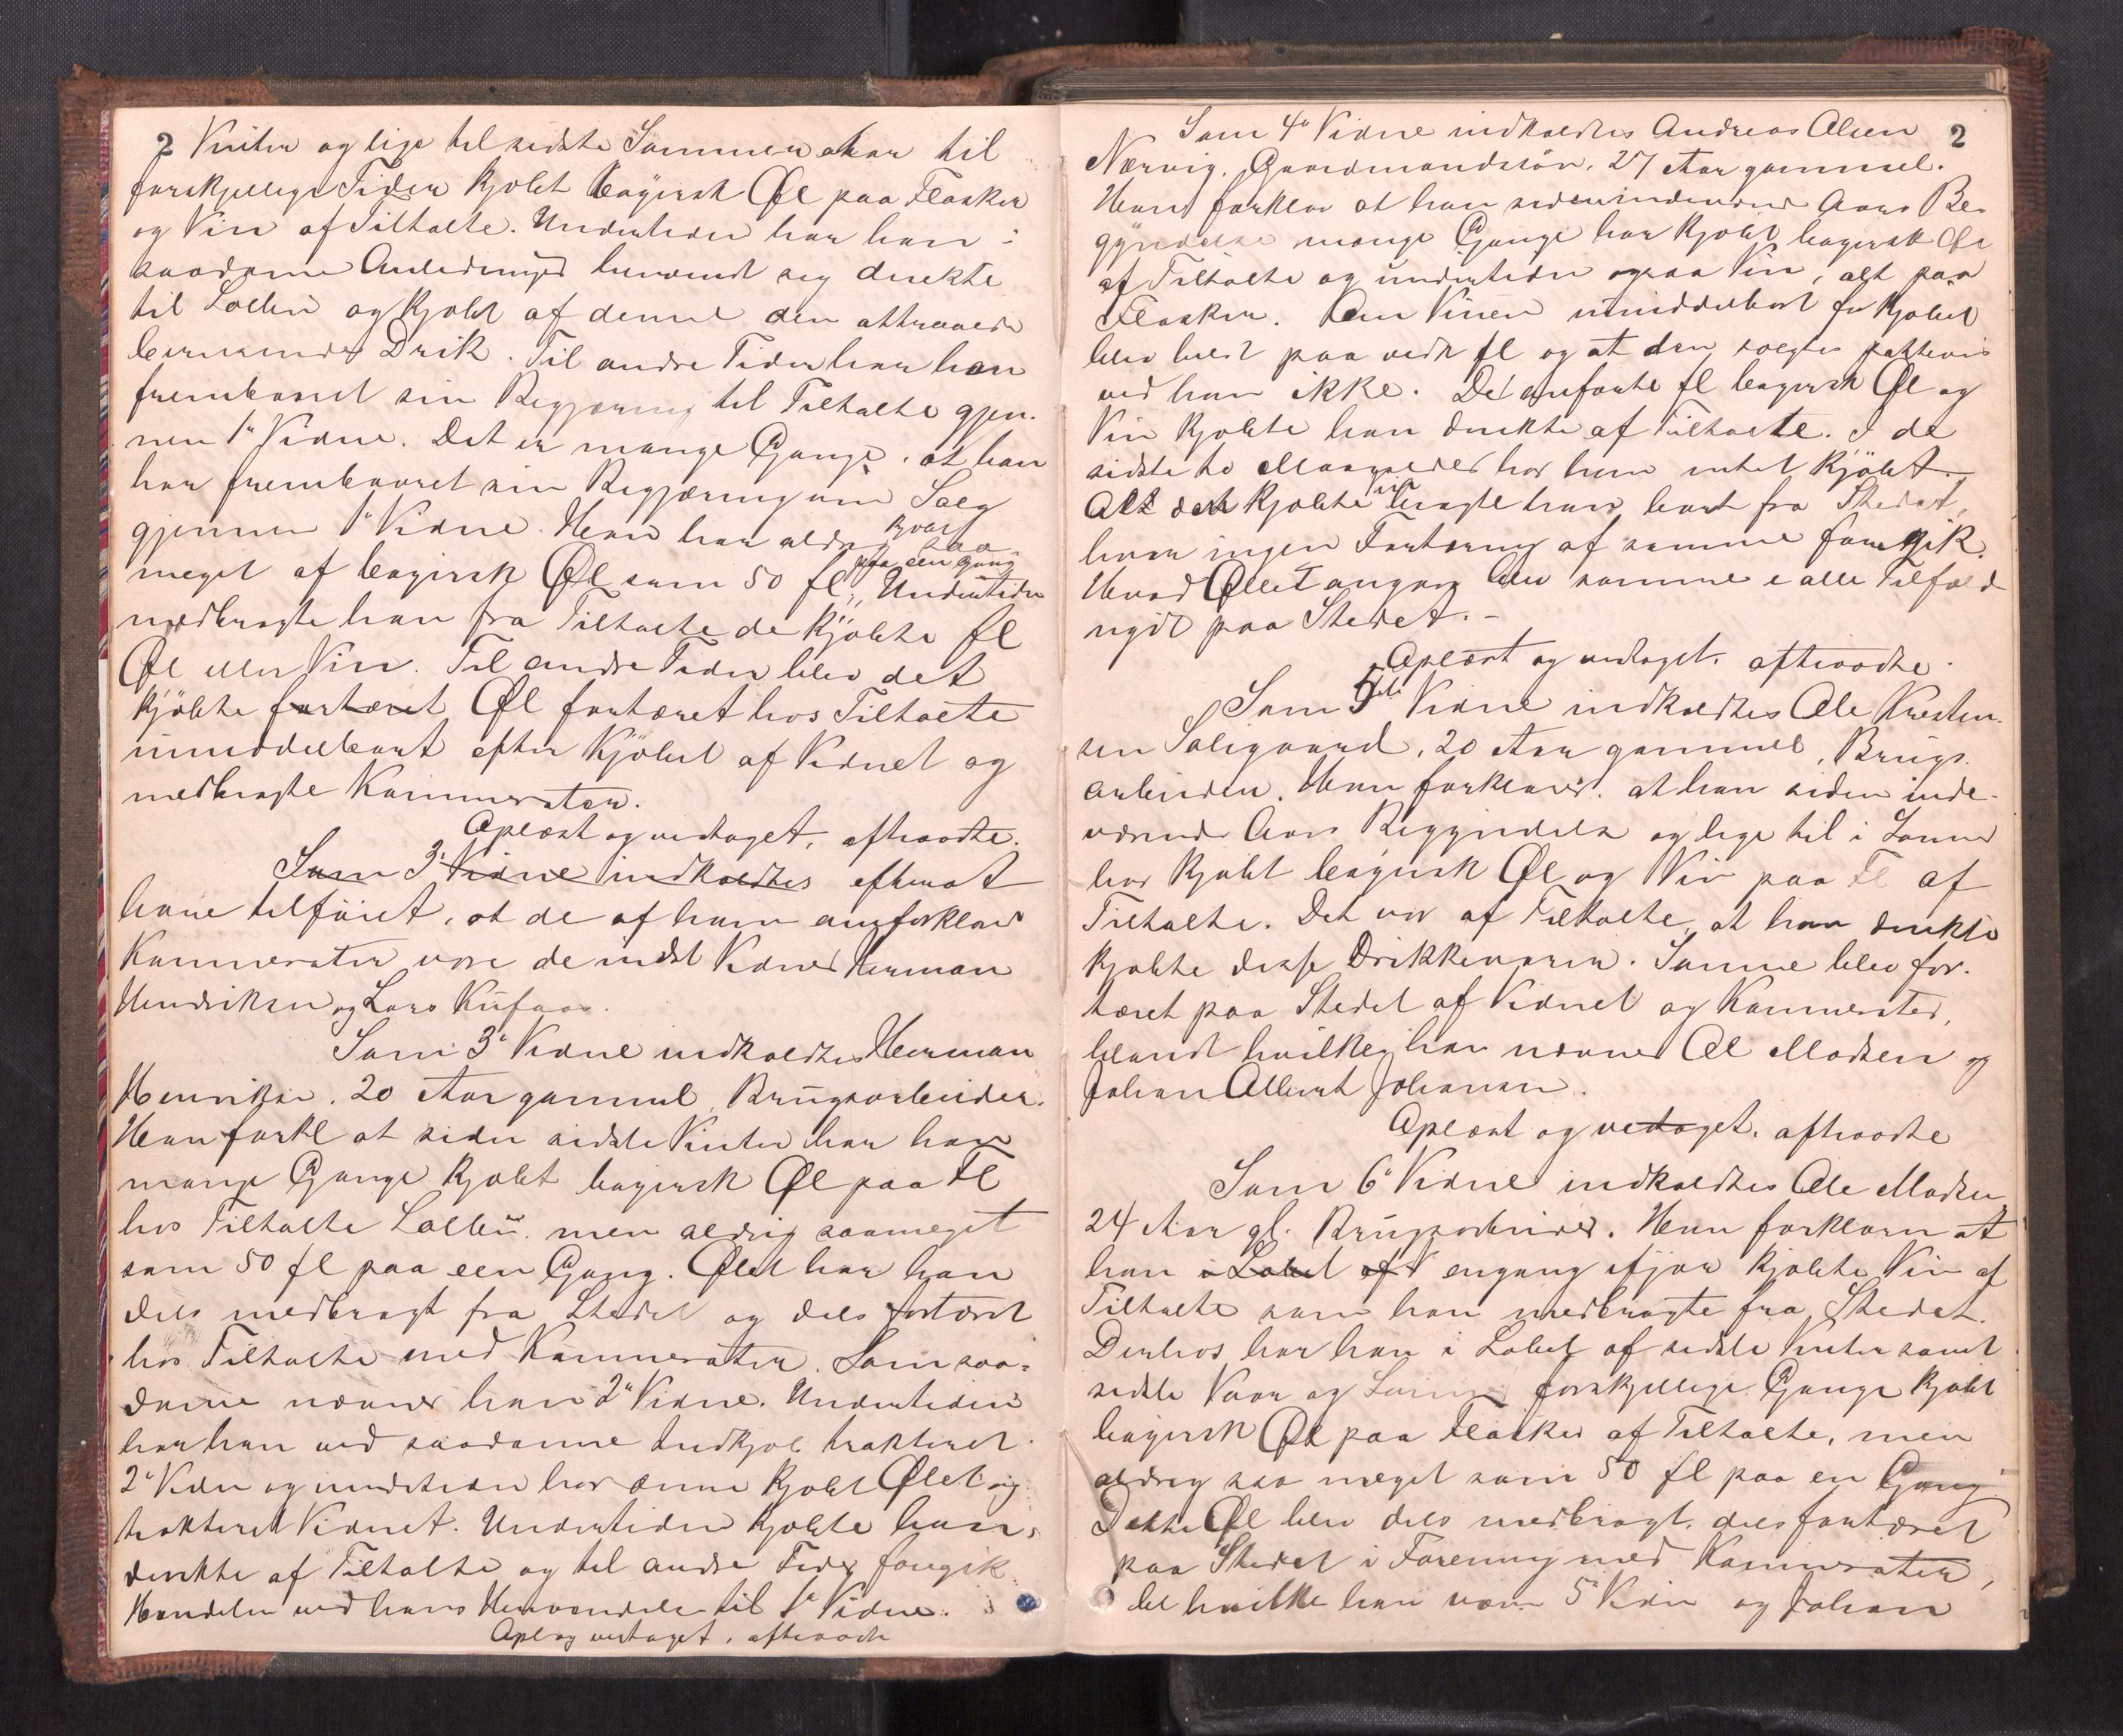 2 Vinter og lige til sidste Sommer har til
forskjellige Tider kjøbt bayersk Øl paa Flasker
og Vin af Tiltalte. Undertiden har han i
saadanne Anledninger henvendt sig direkte
til Lollin og kjøbt af denne den attraaede
berusende Drik. Til andre Tider har han
frembaaret sin Begjæring til Tiltalte gjen-
nem 1ste Vidne. Det er mange Gange, at han
har frembaaret sin Begjæring om Salg
gjennem 1ste Vidne. Han har aldrig kjøbt saa
meget af bayersk Øl som 50 fl paa een gang. Undertiden
medbragte han fra Tiltalte de kjøbte fl
Øl eller Vin. Til andre Tider blev det
kjøbte fortæret Øl fortæret hos Tiltalte
umiddelbart efter Kjøbet af Vidnet og
medbragte Kammerater.
Oplæst og vedtaget, aftraadte.
Som 3 Vidne indkaldtes efterat
have tilføiet, at de af ham omforklared
Kammerater vare de næst Vidner Herman
Hendriksen og Lars Kufaas.
Som 3die Vidne indkaldtes Herman
Henriksen, 20 Aar gammel, Brugsarbeider.
Han forkl at siden sidste Vinter har han
mange Gange kjøbt bayersk Øl paa Fl
hos Tiltalte Lollin, men aldrig saameget
som 50 fl paa een Gang. Ølet har han
dels medbragt fra Stedet og dels fortæret
hos Tiltalte med Kammerater. Som saa-
danne nævner han 2det Vidne. Undertiden
har han ved saadanne Indkjøb trakteret
2det Vidne og undertiden har denne kjøbt Ølet og
trakteret Vidnet. Undertiden kjøbte han
direkte af Tiltalte og til andre Tider foregik
Handelen ved hans Henvendelse til 1ste Vidne.
Opl og vedtaget, aftraadte
2
Som 4de Vidne indkaldtes Andreas Olsen
Nærvig, Gaardmandssøn, 27 Aar gammel.
Han forklar at han siden indeværende Aars Be-
gyndelse mange Gange har kjøbt bayersk Øl
af Tiltalte og undertiden ogsaa Vin, alt paa
Flasker. Om Vinen umiddelbart før Kjøbet
blev helt paa vedk fl og at den solgtes pottevis
ved han ikke. De anførte fl bayersk Øl og
Vin kjøbte han direkte af Tiltalte. I de
sidste to Maaneder har han intet kjøbt.
Alt den kjøbte Vin bragte han bort fra Stedet,
hvor ingen Fortæring af samme foregik.
Hvad Øllet angaar blev samme i alle Tilfælde
nydt paa Stedet. -
Oplæst og vedtaget, aftraadte.
Som 5te Vidne indkaldtes Ole Kristen-
sen Solgaard, 20 Aar gammel, Brugs-
arbeider. Han forklarer, at han siden inde-
værende Aars Begyndelse og lige til i Sommer
har kjøbt bayersk Øl og Vin paa Fl af
Tiltalte. Det var af Tiltalte, at han direkte
kjøbte disse Drikkevarer. Samme blev for-
tæret paa Stedet af Vidnet og Kammerater,
blandt hvilke han nævner Ole Madsen og
Johan Albert Johansen.
Oplæst og vedtaget, aftraadte
Som 6te Vidne indkaldtes Ole Madsen
24 Aar gl. Brugsarbeider. Han forklarer at
han i Løbet af V engang ifjor kjøbte Vin af
Tiltalte som han medbragte fra Stedet.
Derhos har han i Løbet af sidste Vinter samt
sidste Vaar og Sommer forskjellige Gange kjøbt
bayersk Øl paa Flasker af Tiltalte, men
aldrig saa meget som 50 fl paa en Gang
Dette Øl blev dels medbragt, dels fortæret
paa Stedet i Forening med Kammerater,
til hvilke han nævner 5te Vidne og Johan